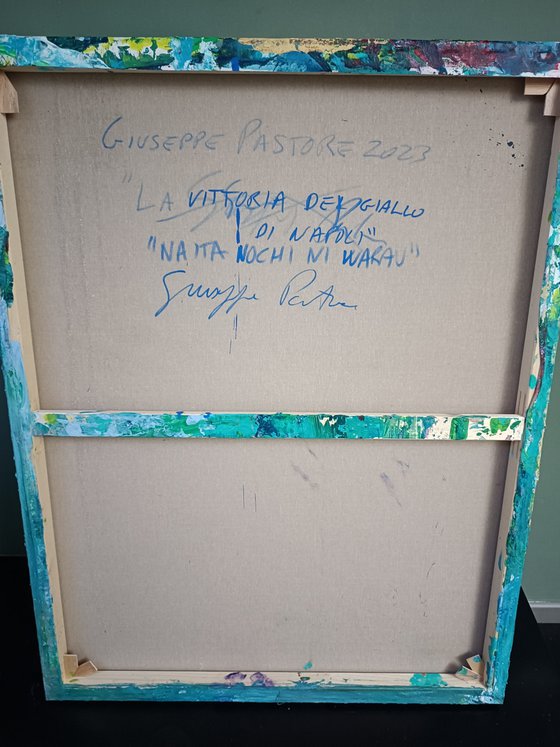 GIUSEPPE PASTORE 2023
"LA VITTORIA DEL GIALLO
DI NAPOLI"
"NATTA NOCHI NI WARAU"
Giuseppe Pastore